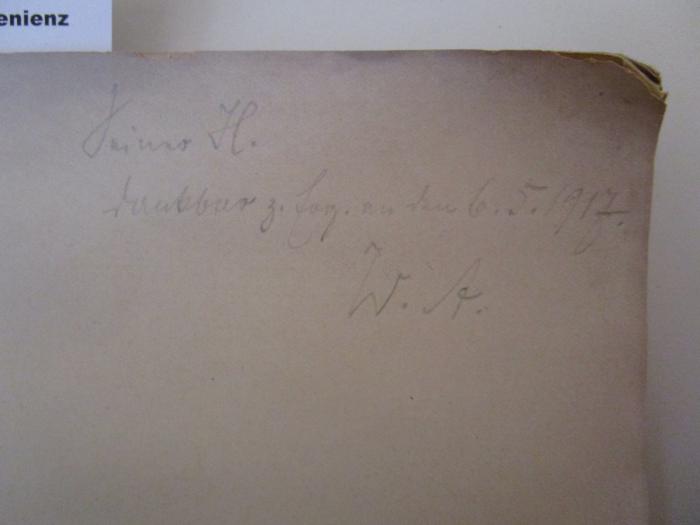 enienz
Seiner H.
dankbar z. Erg. an den 6. 5. 1917.
W. A.